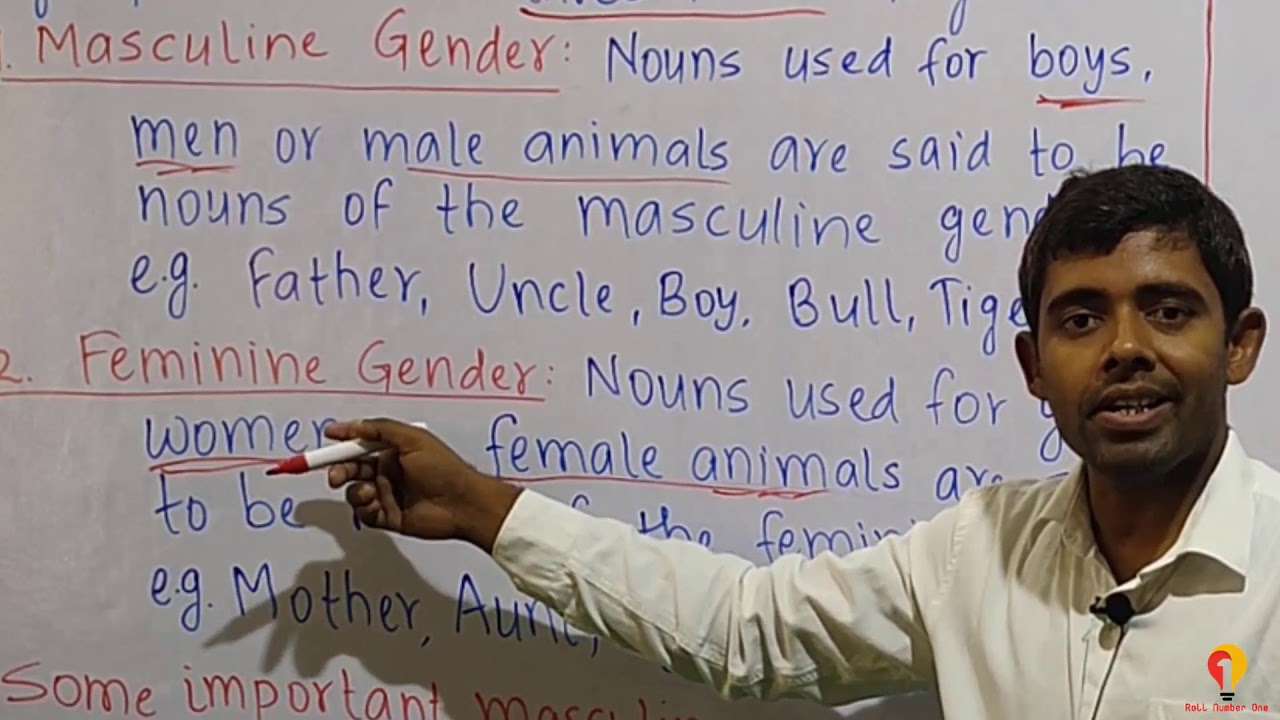 1. Masculine Gender: Nouns used for boys,
men or male animals are said to be
nouns of the masculine
e.g. Father, Uncle, Boy, Bull,
2. Feminine Gender: Nouns used for
women female animals are
to be the
e.g. Mother, Aunt,
Some important
Roll Number One